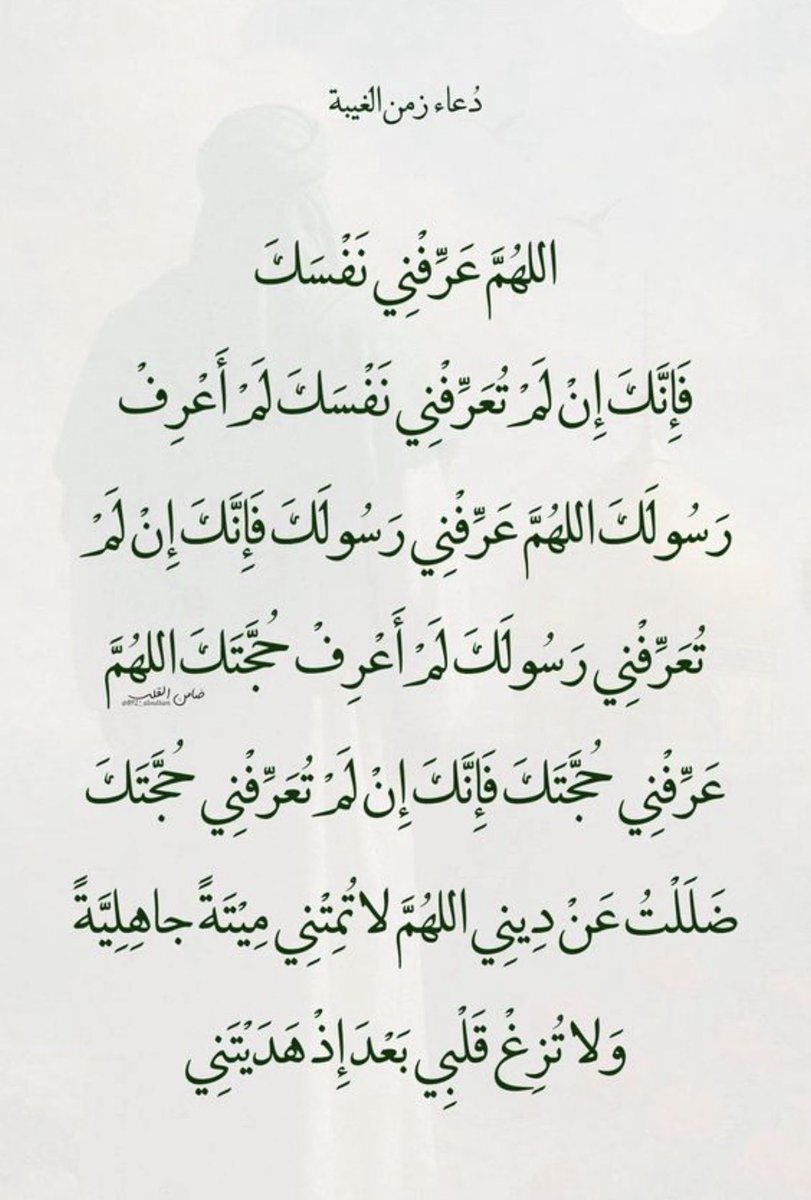 دُعاء زمن الغيبة
اللهُمَّ عَرِّفْنِي نَفْسَكَ
فَإِنَّكَ إِنْ لَمْ تُعَرِّفْنِي نَفْسَكَ لَمْ أَعْرِفْ
رَسُولَكَ اللهُمَّ عَرِّفْنِي رَسُولَكَ فَإِنَّكَ إِنْ لَمْ
تُعَرِّفْنِي رَسُولَكَ لَمْ أَعْرِفْ حُجَّتَكَ اللهُمَّ
ضامن القلب
عَرِّفْنِي حُجَّتَكَ فَإِنَّكَ إِنْ لَمْ تُعَرِّفْنِي حُجَّتَكَ
ضَلَلْتُ عَنْ دِينِي اللهُمَّ لا تُمِتْنِي مِيْتَةً جاهِلِيَّةً
وَلا تُزِغْ قَلْبِي بَعْدَ إِذْ هَدَيْتَنِي